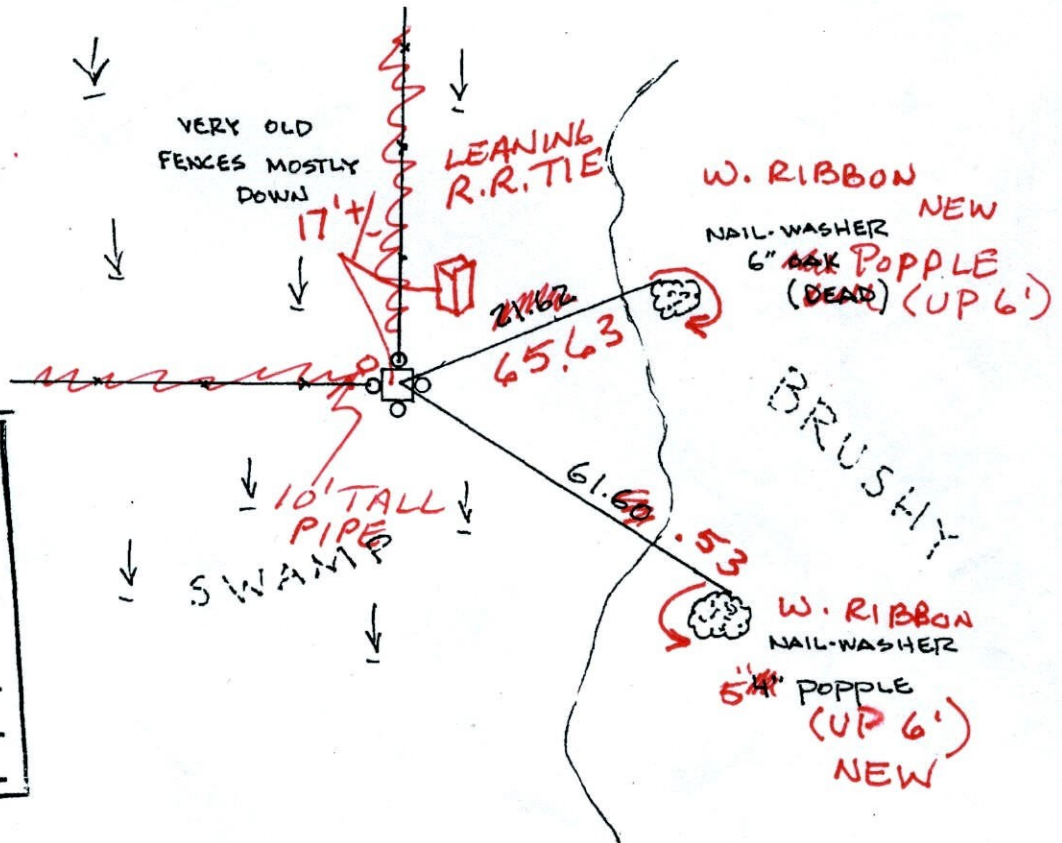 VERY OLD
FENCES MOSTLY
DOWN
17'+/-
LEANING
R.R. TIE
W. RIBBON
NEW
NAIL-WASHER
6" OAK POPPLE
(DEAD) (UP 6')
21.62
65.63
BRUSHY
61.60 .53
10' TALL
PIPE
SWAMP
W. RIBBON
NAIL-WASHER
5" 4" POPPLE
(UP 6')
NEW